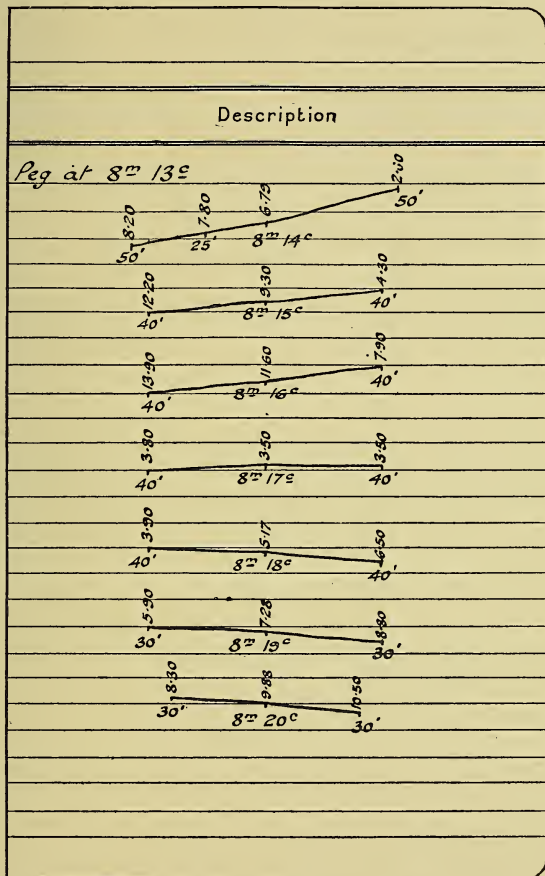 Description
Peg at 8ᵐ 13ᶜ
8·20 7·80 6·79 2·00
50' 25' 8ᵐ 14ᶜ 50'
12·20 9·30 4·30
40' 8ᵐ 15ᶜ 40'
13·90 11·60 7·90
40' 8ᵐ 16ᶜ 40'
3·80 3·50 3·50
40' 8ᵐ 17ᶜ 40'
3·90 5·17 6·50
40' 8ᵐ 18ᶜ 40'
5·90 7·28 8·80
30' 8ᵐ 19ᶜ 30'
8·30 9·88 10·50
30' 8ᵐ 20ᶜ 30'